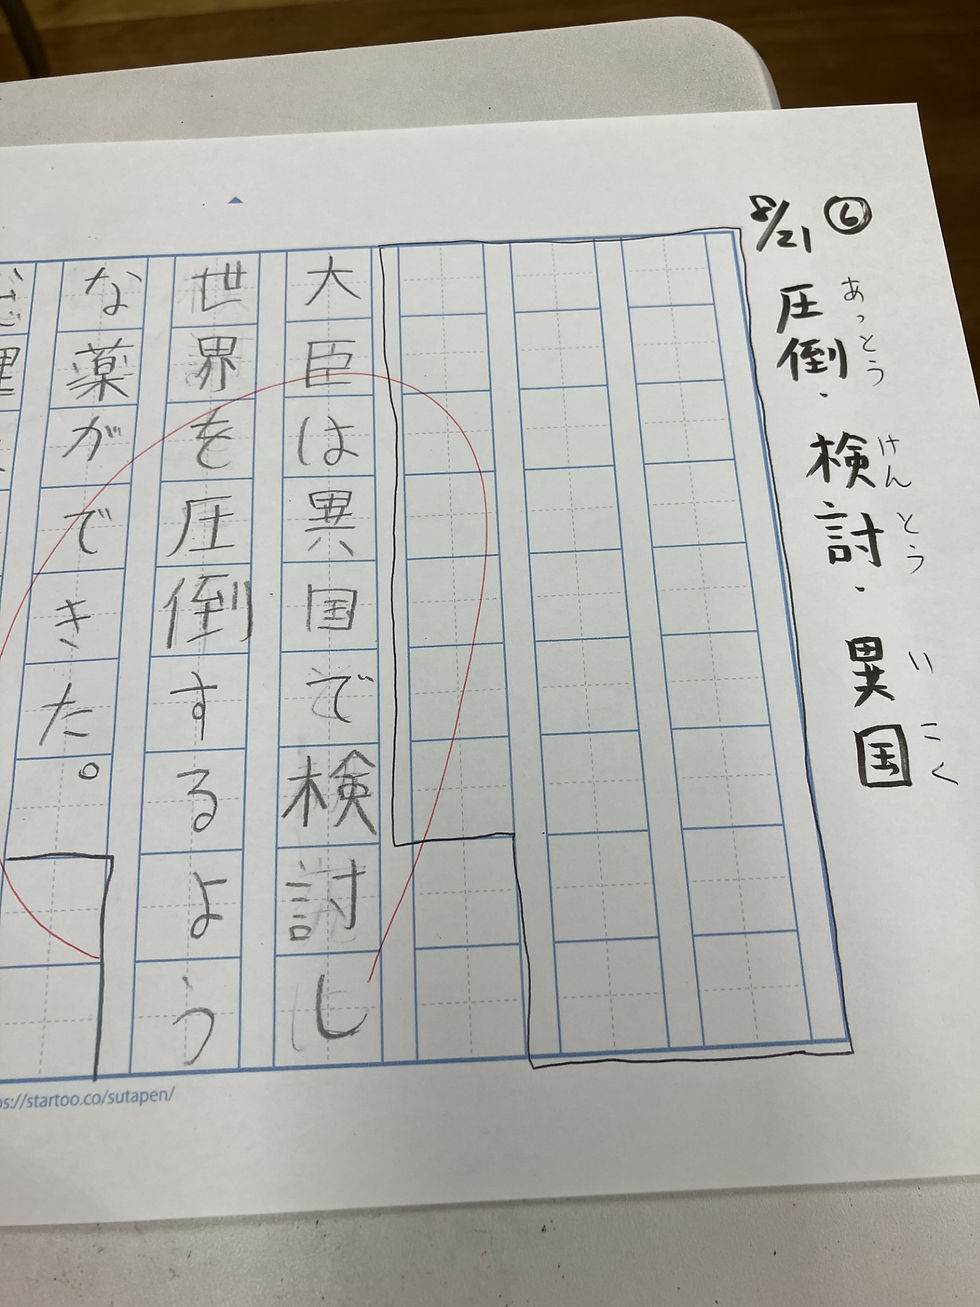 ⑥
8/21
あっとう
圧倒・
けんとう
検討・
いこく
異国
大臣は異国で検討し
世界を圧倒するよう
な薬ができた。
理
s://startoo.co/sutapen/